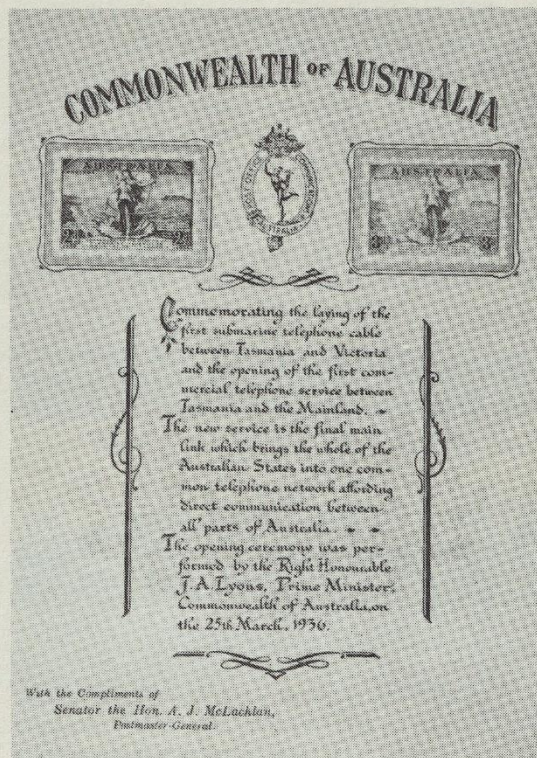 COMMONWEALTH OF AUSTRALIA
AUSTRALIA
2D 2D
POST OFFICE COMMONWEALTH AUSTRALIA
AUSTRALIA
3D 3D
Commemorating the laying of the
first submarine telephone cable
between Tasmania and Victoria
and the opening of the first com-
mercial telephone service between
Tasmania and the Mainland.
The new service is the final main
link which brings the whole of the
Australian States into one com-
mon telephone network affording
direct communication between
all parts of Australia.
The opening ceremony was per-
formed by the Right Honourable
J. A. Lyons, Prime Minister,
Commonwealth of Australia, on
the 25th March, 1936.
With the Compliments of
Senator the Hon. A. J. McLachlan,
Postmaster-General.